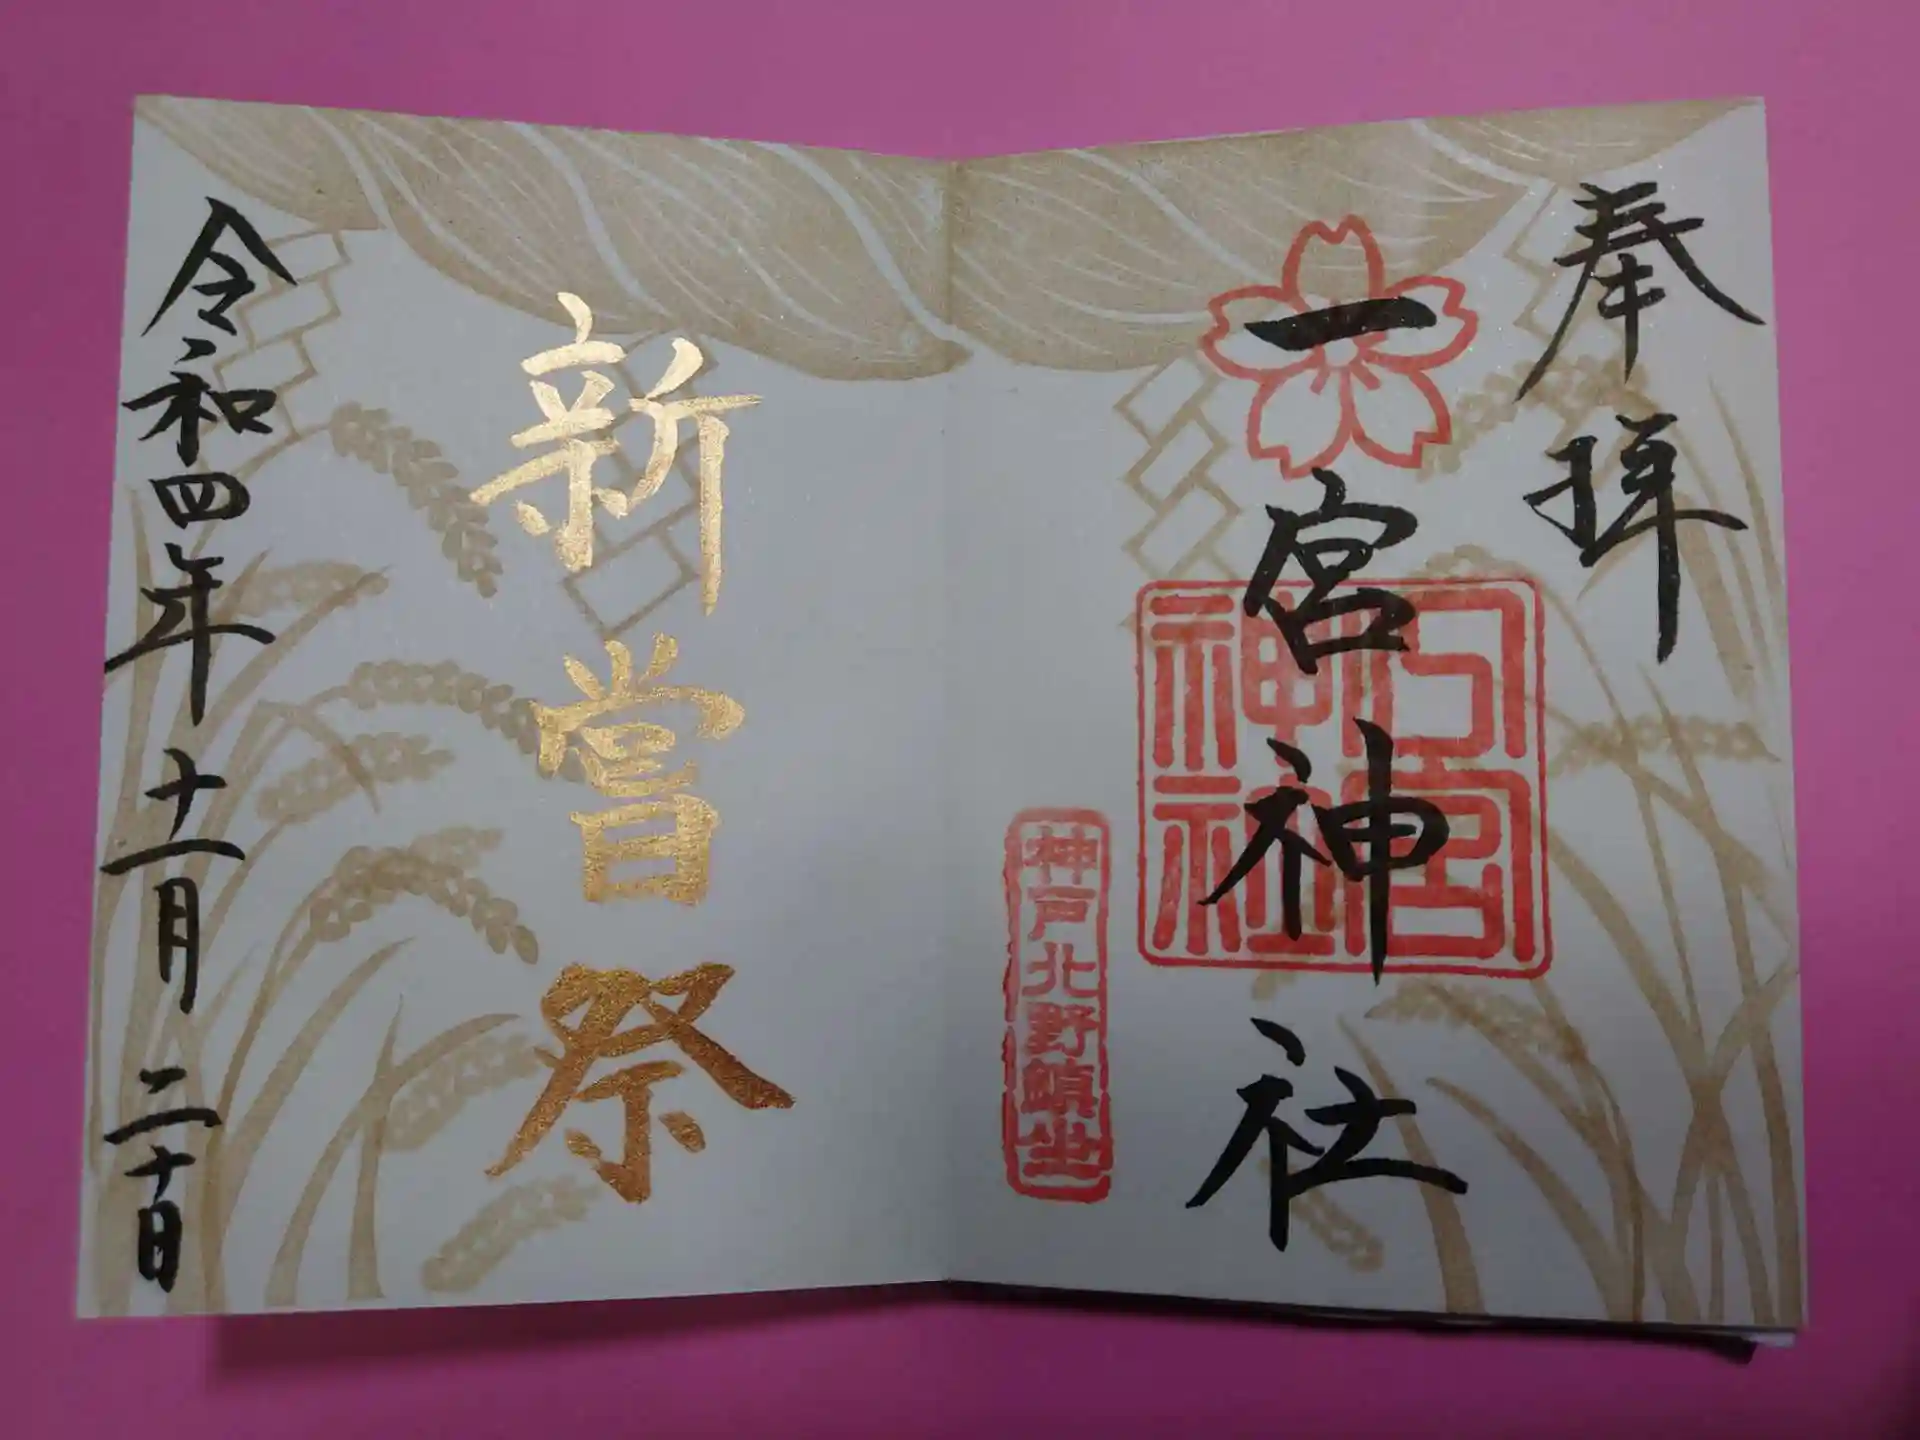 奉拝
一宮神社
一宮神社
神戸北野鎮坐
新嘗祭
令和四年十一月二十日